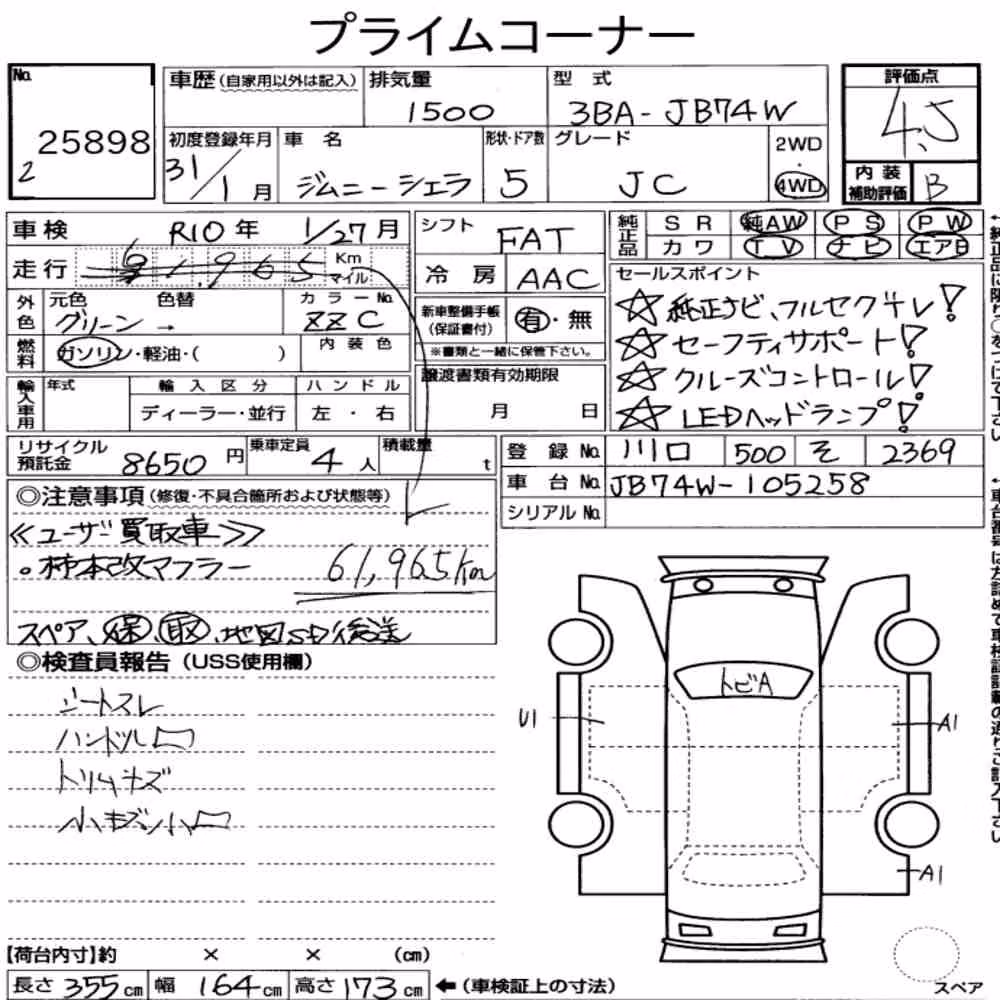 プライムコーナー
No. 25898
2
車歴(自家用以外は記入)
排気量 1500
型式 3BA-JB74W
評価点
初度登録年月 31/1月
車名 ジムニーシエラ
形状・ドア数 5
グレード JC
2WD・4WD
内装補助評価 B
車検 R10年 1/27月
走行 Km マイル
シフト FAT
冷房 AAC
純正品 SR 純AW PS PW
カワ TV ナビ エアB
外色 元色 グリーン→ 色替
カラーNo. ZZC
内装色
燃料 ガソリン・軽油・( )
新車整備手帳(保証書付) 有・無
※書類と一緒に保管下さい。
セールスポイント
☆純正ナビ、フルセグTV!
☆セーフティサポート!
☆クルーズコントロール!
☆LEDヘッドランプ!
輸入車用 年式 輸入区分 ハンドル
ディーラー・並行 左・右
譲渡書類有効期限
月 日
リサイクル預託金 8650円
乗車定員 4人
積載量 t
登録No. 川口 500 そ 2369
車台No. JB74W-105258
シリアルNo.
◎注意事項(修復・不具合箇所および状態等)
≪ユーザー買取車≫
・柿本改マフラー
61,965km
スペア、保、取、地図SD後送
◎検査員報告(USS使用欄)
シートスレ
トリムキズ
トビA
U1
A1
A1
【荷台内寸】約 × × (cm)
長さ355cm 幅164cm 高さ173cm ←(車検証上の寸法)
スペア